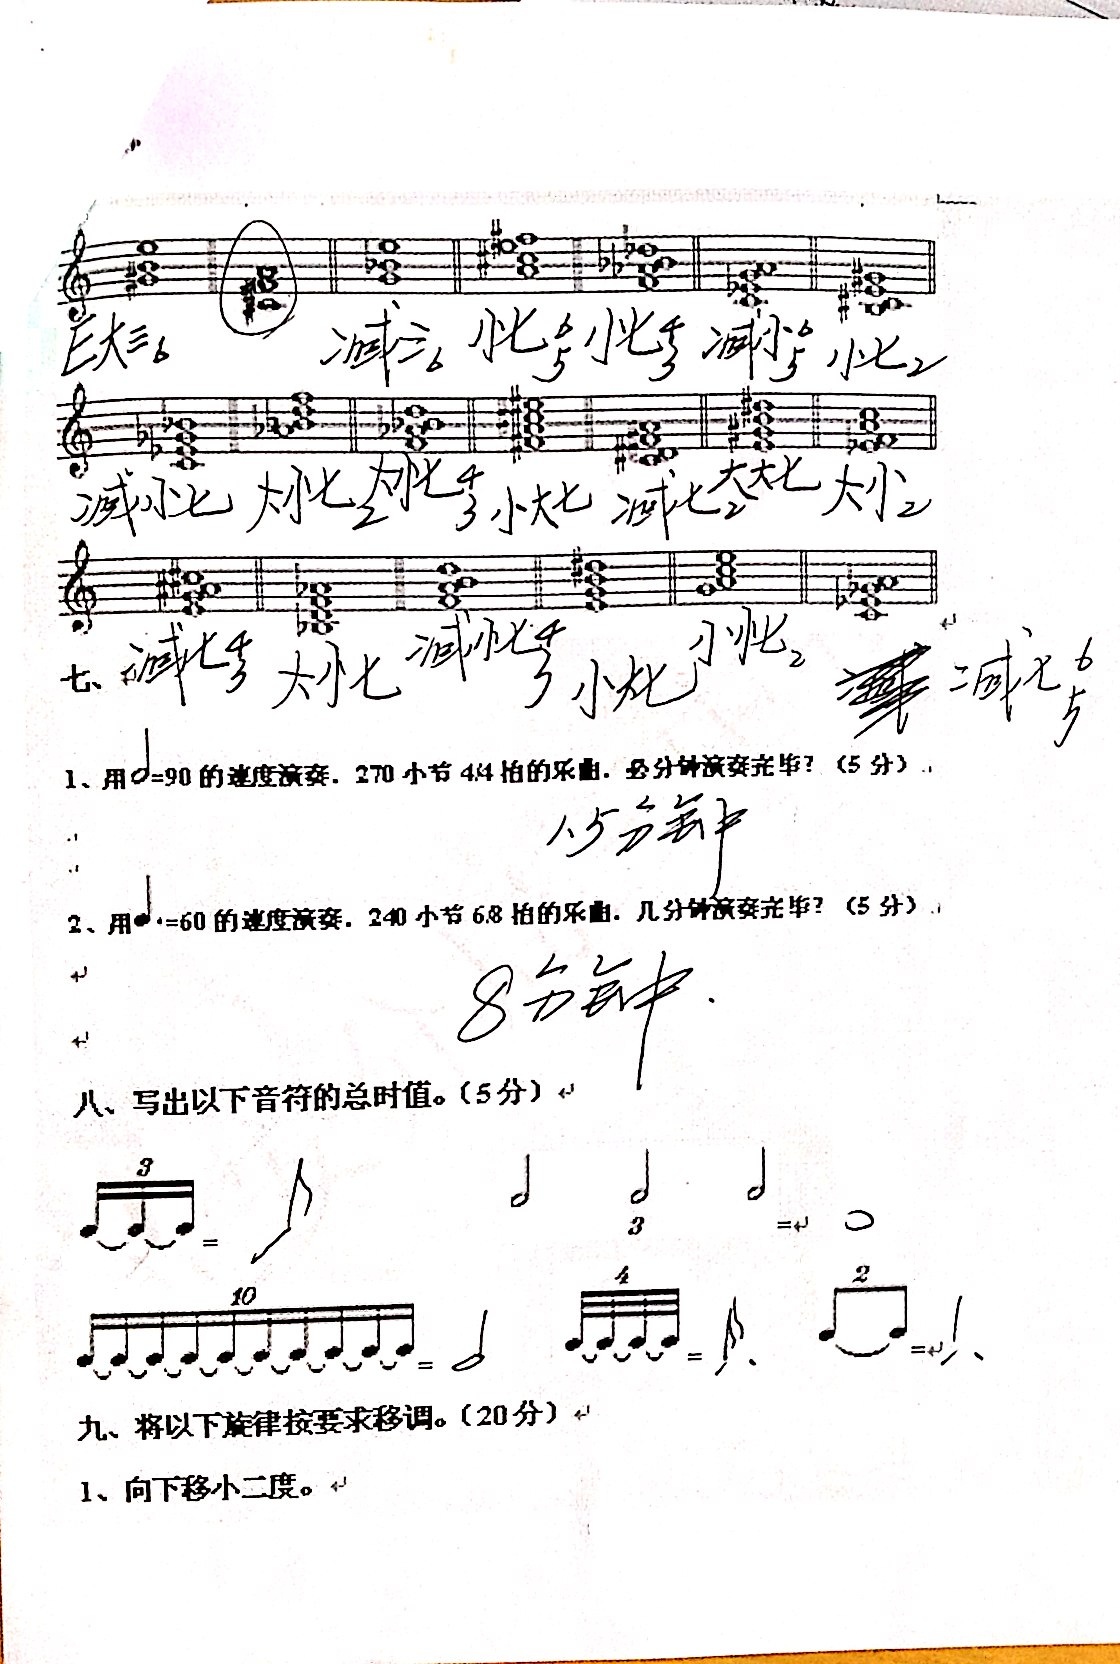 大三6 减三6 小七6 5 小七4 3 减小6 5 小七2
减小七 大小七2 大小七4 3 小大七 减七2 大大七 大小2
减七4 3 大小七 减小七4 3 小大七 小小七2 减七6 5
七、
1、用𝅗𝅥=90的速度演奏.270小节4/4拍的乐曲.几分钟演奏完毕?(5分)
1.5分钟
2、用♩.=60的速度演奏.240小节6/8拍的乐曲.几分钟演奏完毕?(5分)
8分钟.
八、写出以下音符的总时值。(5分)
3
= 3 =
10 4 2
= = =
九、将以下旋律按要求移调。(20分)
1、向下移小二度。